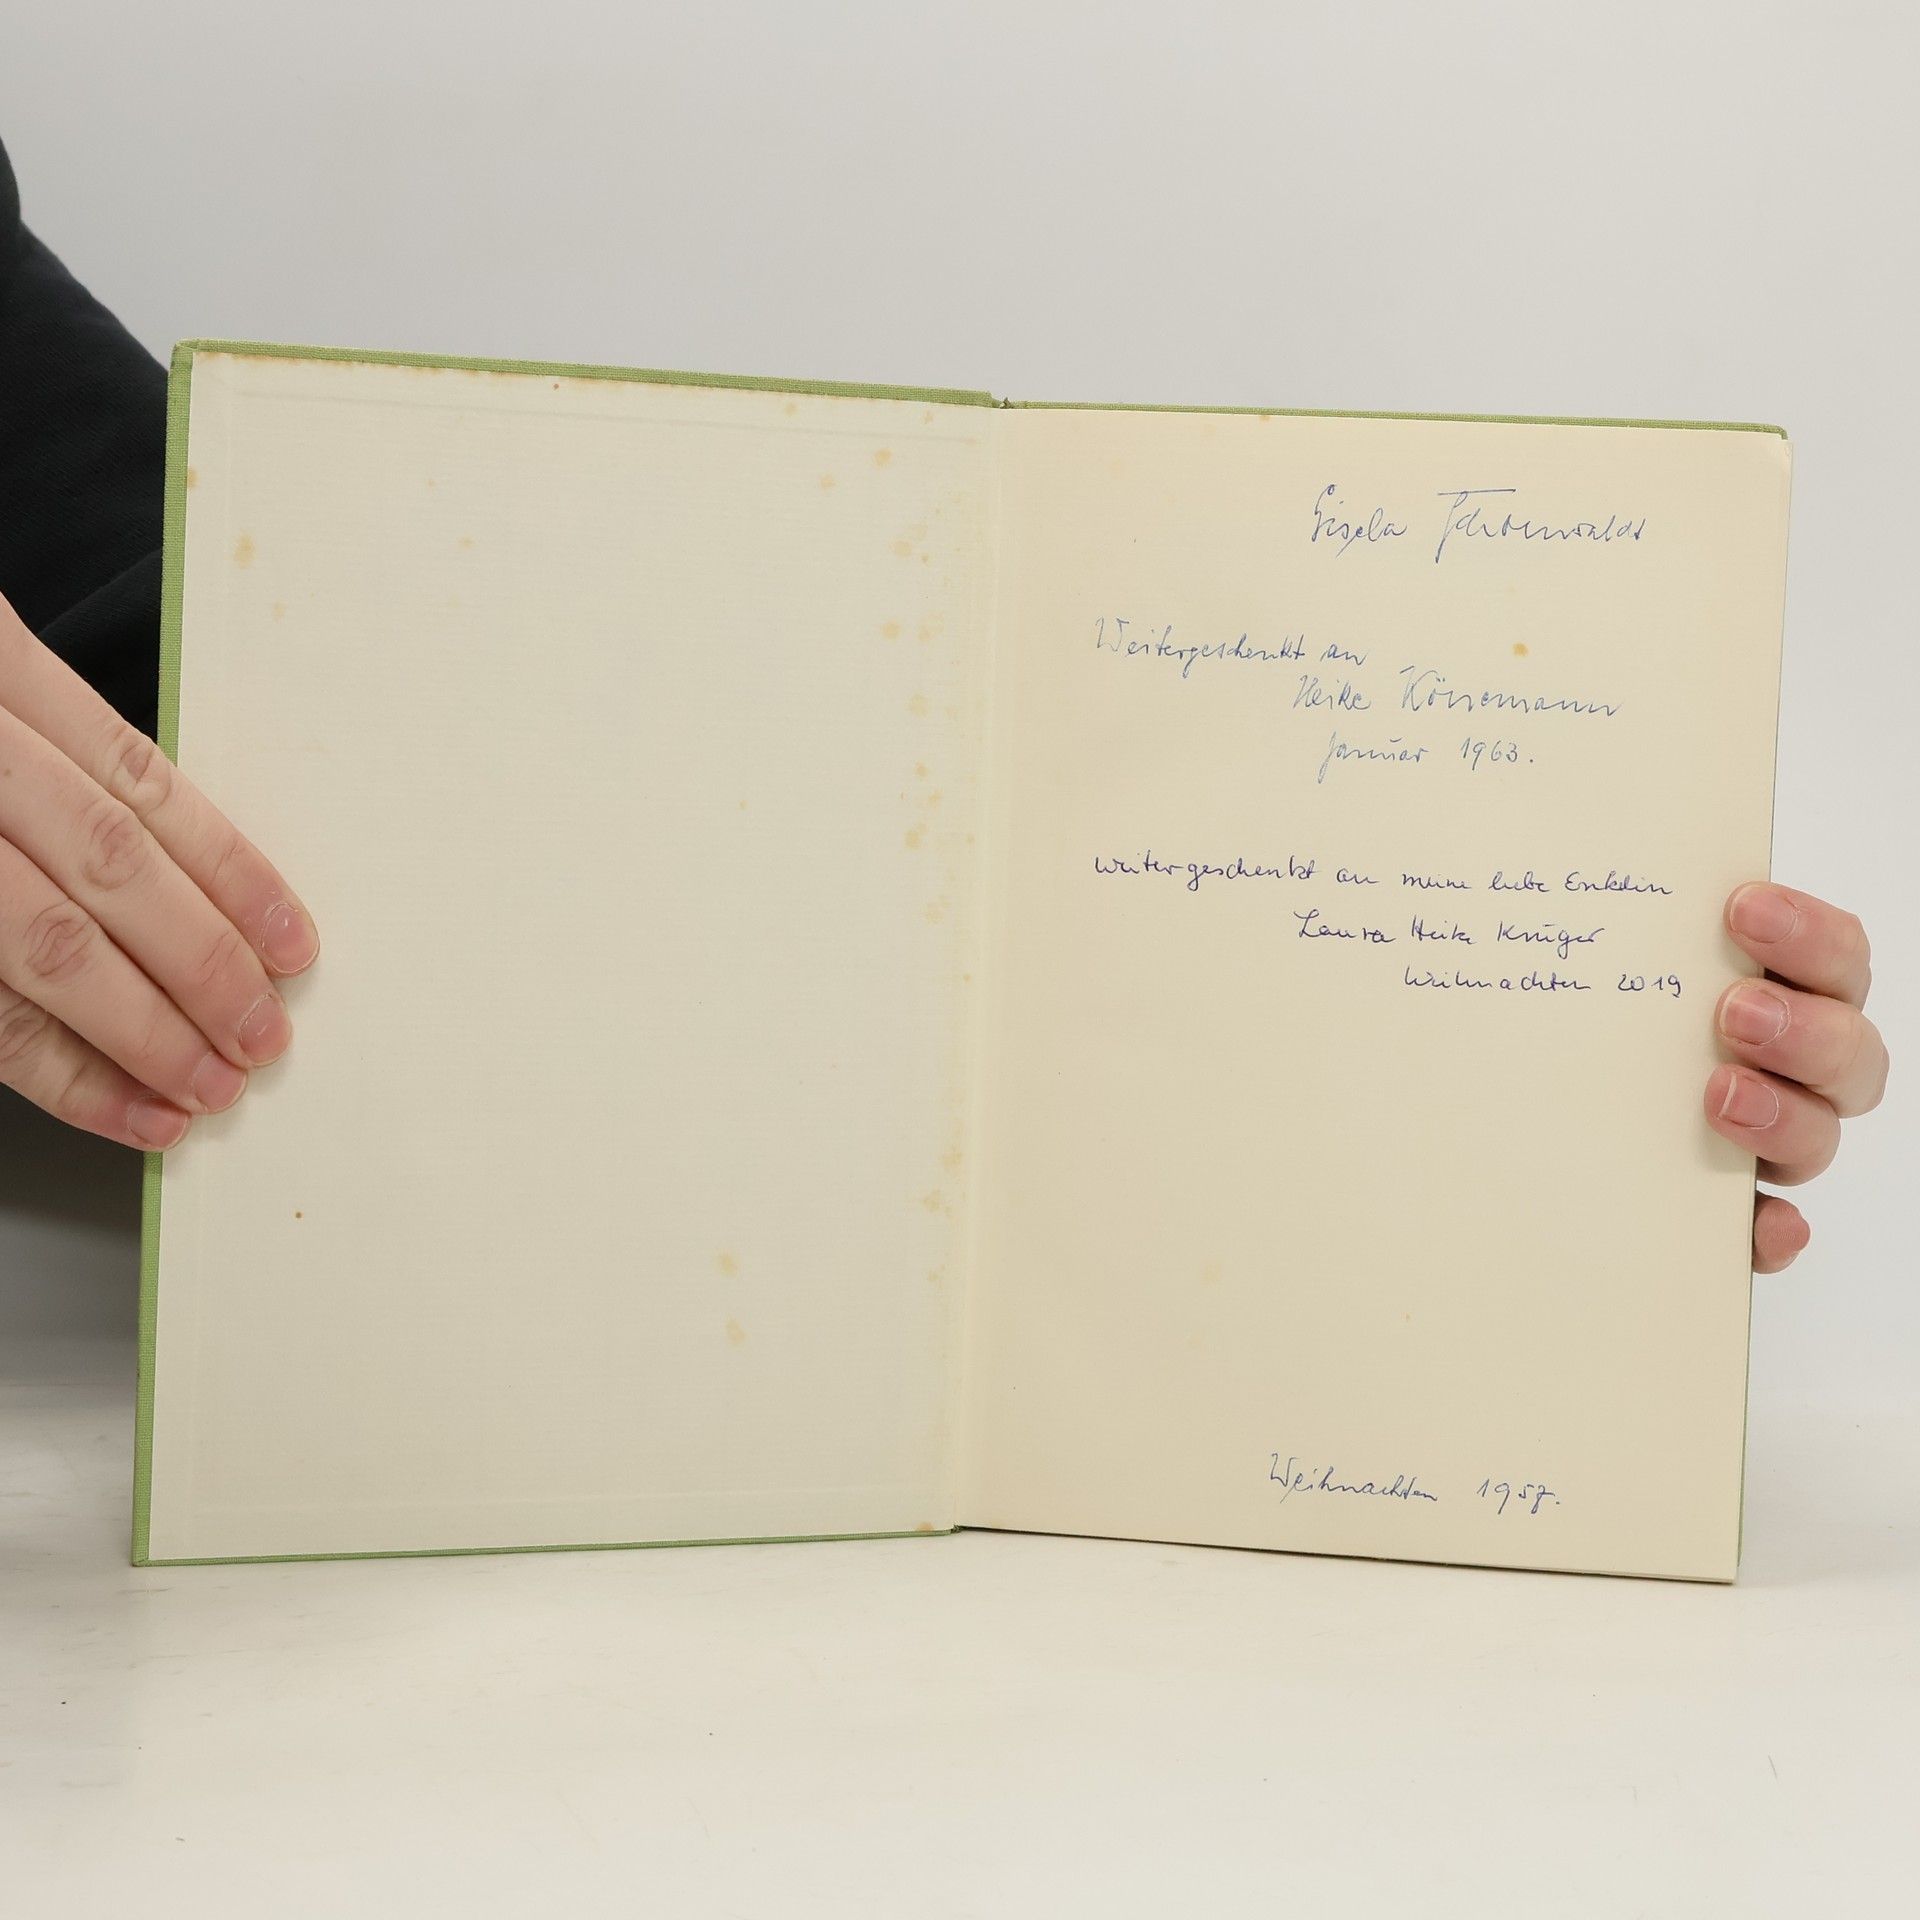 Gisela Schönwaldt
Weitergeschenkt an
Heike Könemann
Januar 1963.
weitergeschenkt an meine liebe Enkelin
Laura Heike Krüger
Weihnachten 2019
Weihnachten 1957.